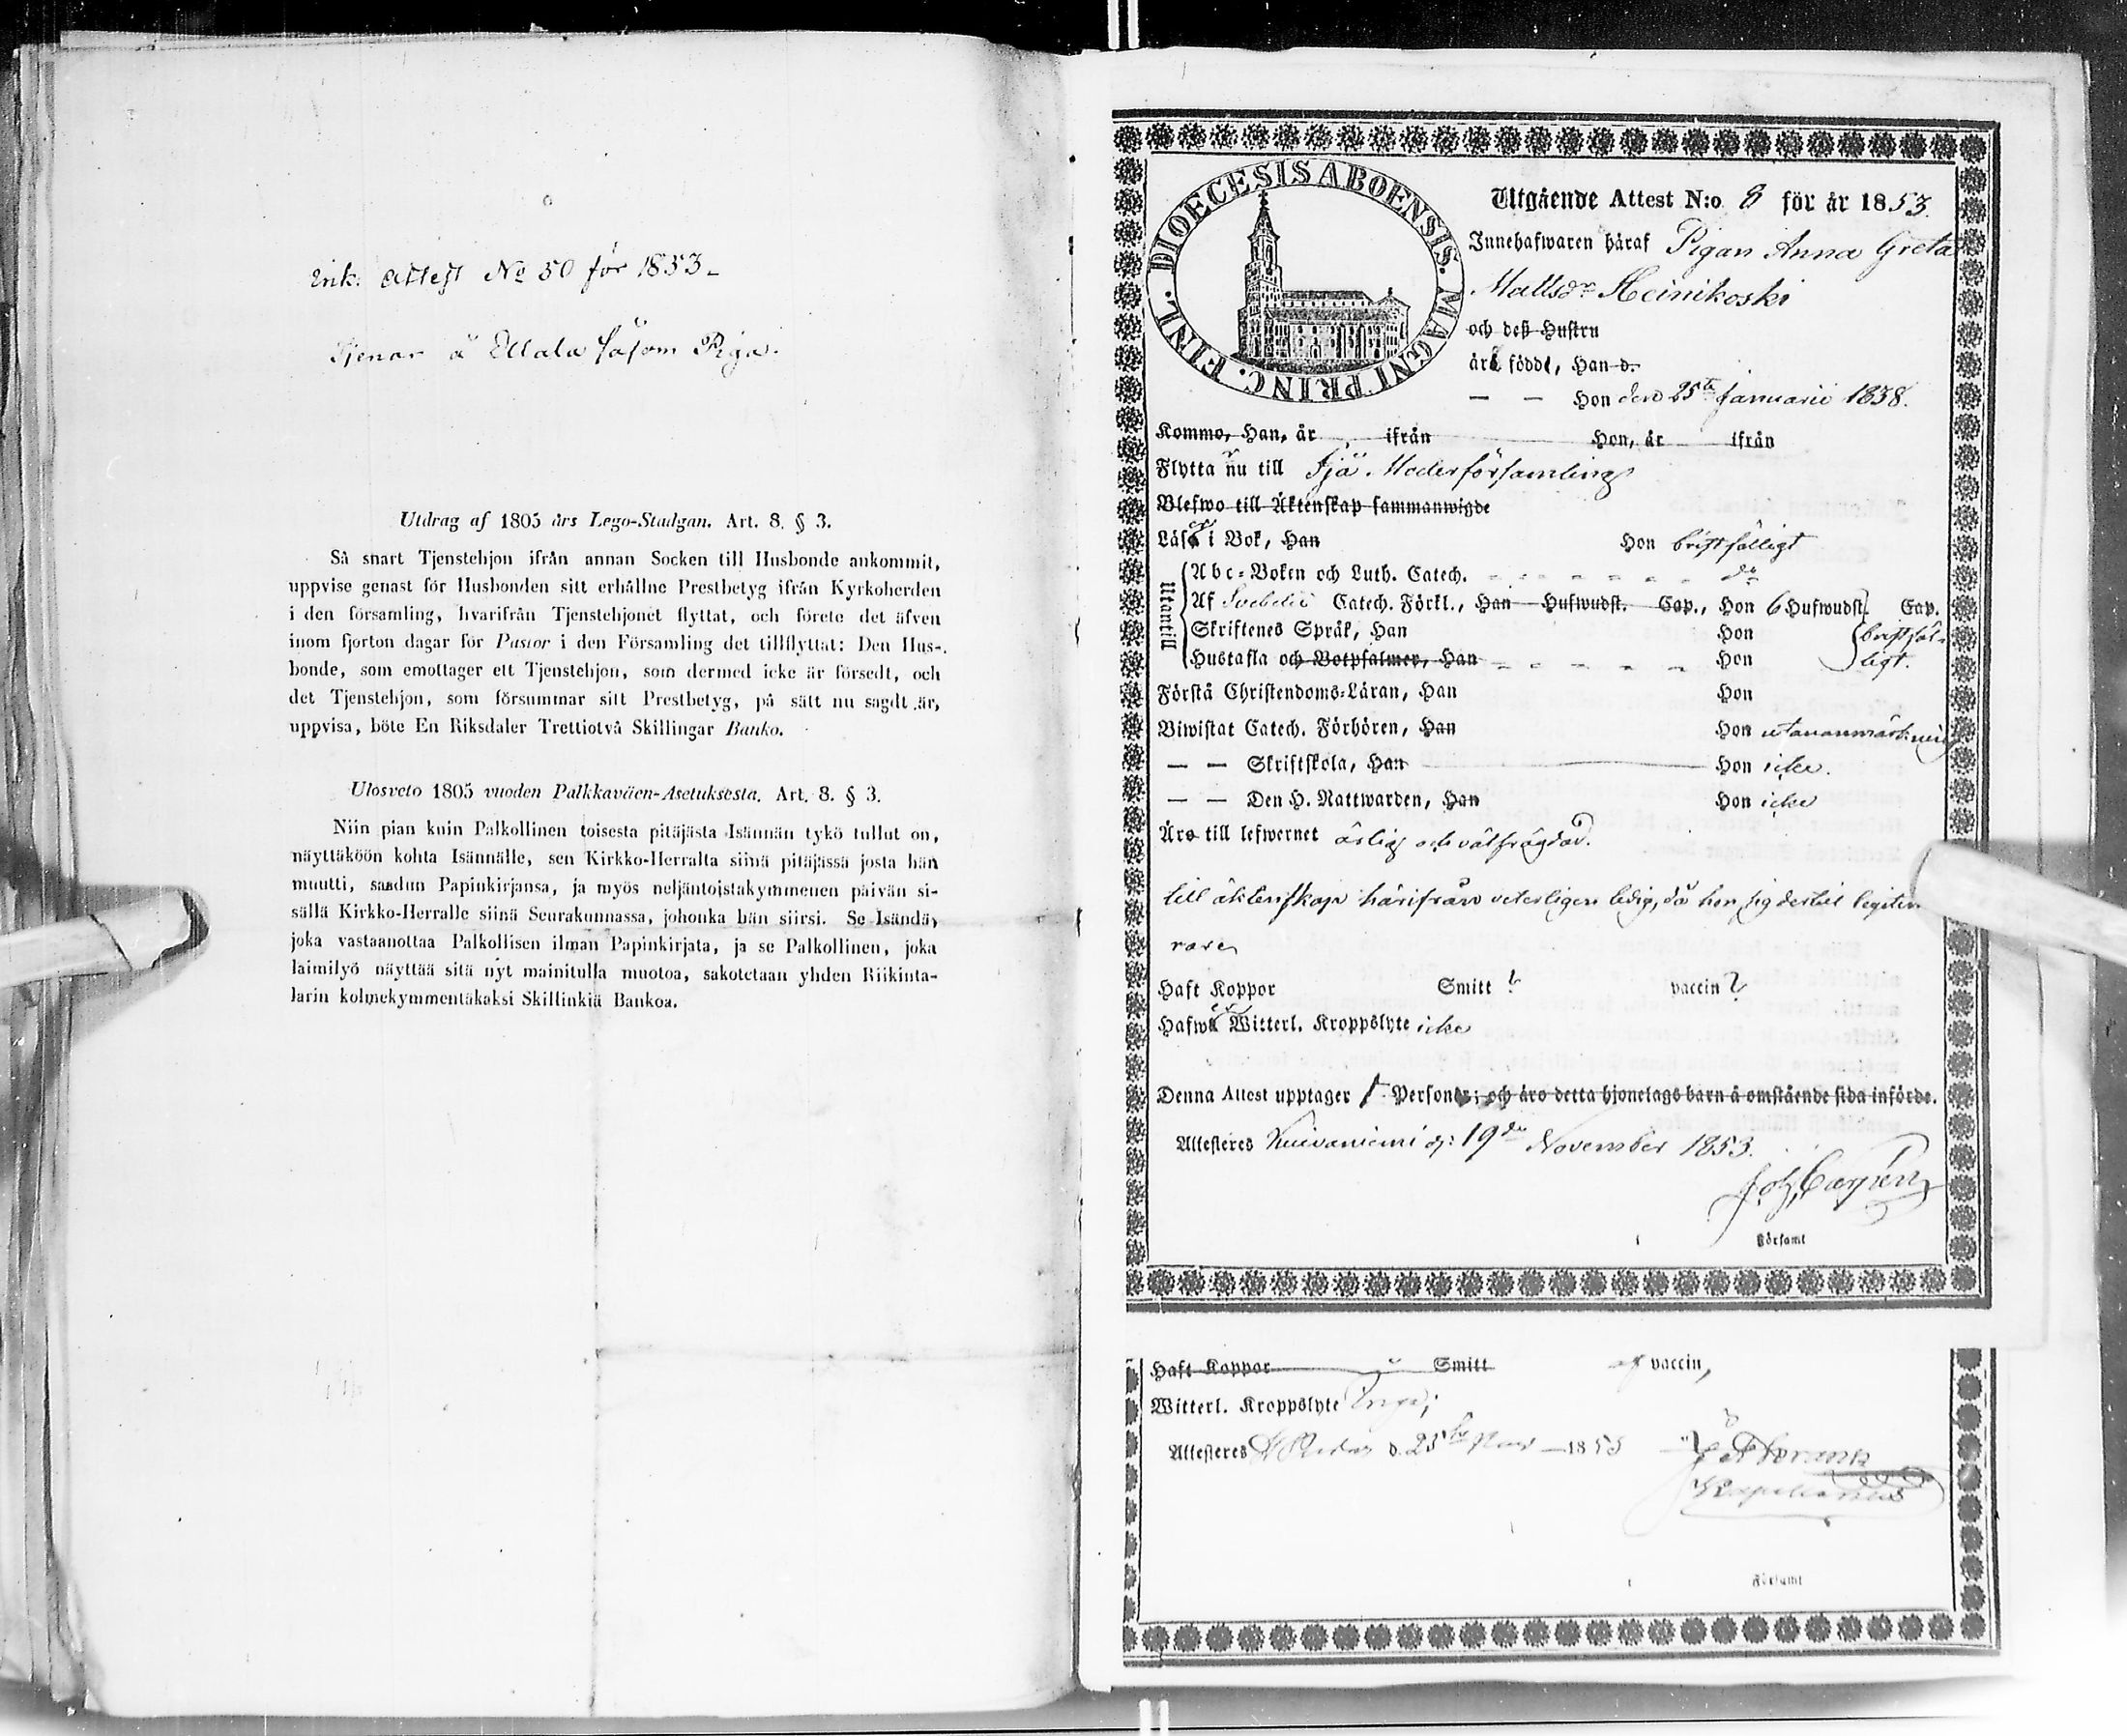 Ink: Attest No 50 för 1853.
Tjenar å Ellala såsom Piga.
Utdrag af 1805 års Lego-Stadgan. Art. 8. § 3.
Så snart Tjenstehjon ifrån annan Socken till Husbonde ankommit,
uppvise genast för Husbonden sitt erhållne Prestbetyg ifrån Kyrkoherden
i den församling, hvarifrån Tjenstehjonet flyttat, och förete det äfven
inom fjorton dagar för Pastor i den Församling det tillflyttat: Den Hus-
bonde, som emottager ett Tjenstehjon, som dermed icke är försedt, och
det Tjenstehjon, som försummar sitt Prestbetyg, på sätt nu sagdt är,
uppvisa, böte En Riksdaler Trettiotvå Skillingar Banko.
Ulosveto 1805 vuoden Palkkaväen-Asetuksesta. Art. 8. § 3.
Niin pian kuin Palkollinen toisesta pitäjästa Isännän tykö tullut on,
näyttäköön kohta Isännälle, sen Kirkko-Herralta siinä pitäjässä josta hän
muutti, saadun Papinkirjansa, ja myös neljäntoistakymmenen päivän si-
sällä Kirkko-Herralle siinä Seurakunnassa, johonka hän siirsi. Se Isändä,
joka vastaanottaa Palkollisen ilman Papinkirjata, ja se Palkollinen, joka
laimilyö näyttää sitä nyt mainitulla muotoa, sakotetaan yhden Riikinta-
larin kolmekymmentäkaksi Skillinkiä Bankoa.
DIOECESIS ABOENSIS. MAGNI PRINC. FINL.
Utgående Attest N:o 8 för år 1853.
Innehafwaren häraf Pigan Anna Greta
Mattsdr Heinikoski
och deß Hustru
är född, Han d.
— — Hon den 25te Januarii 1838.
Kommo, Han, år , ifrån Hon, år ifrån
Flyttar nu till Ijå Moderförsamling
Blefwo till Äktenskap sammanwigde
Läser i Bok, Han Hon bristfälligt
Utantill
Abc-Boken och Luth. Catech. do
Af Svebelii Catech. Förkl., Han Hufwudst. Cap., Hon 6 Hufwudst. Cap.
Skriftenes Språk, Han Hon bristfäl-
Hustafla och Botpsalmer, Han Hon ligt.
Förstå Christendoms-Läran, Han Hon
Biwistat Catech. Förhören, Han Hon utan anmärkning
— — Skriftskola, Han Hon icke.
— — Den H. Nattwarden, Han Hon icke
Äro till lefwernet ärlig och välfrägdad.
till äktenskap härifrån veterligen ledig, då hon sig dertill legitime
rare
Haft Koppor Smitt ? vaccin ?
Hafwer Witterl. Kroppslyte icke
Denna Attest upptager 1 Person; och äro detta hjonelags barn å omstående sida införde.
Attesteres Kuivaniemi d: 19de November 1853.
Joh Carpén
i Församl
Haft Koppor Smitt af vaccin,
Witterl. Kroppslyte Inga;
Attesteres d. 25te 1853
Kapellanus
i Församl